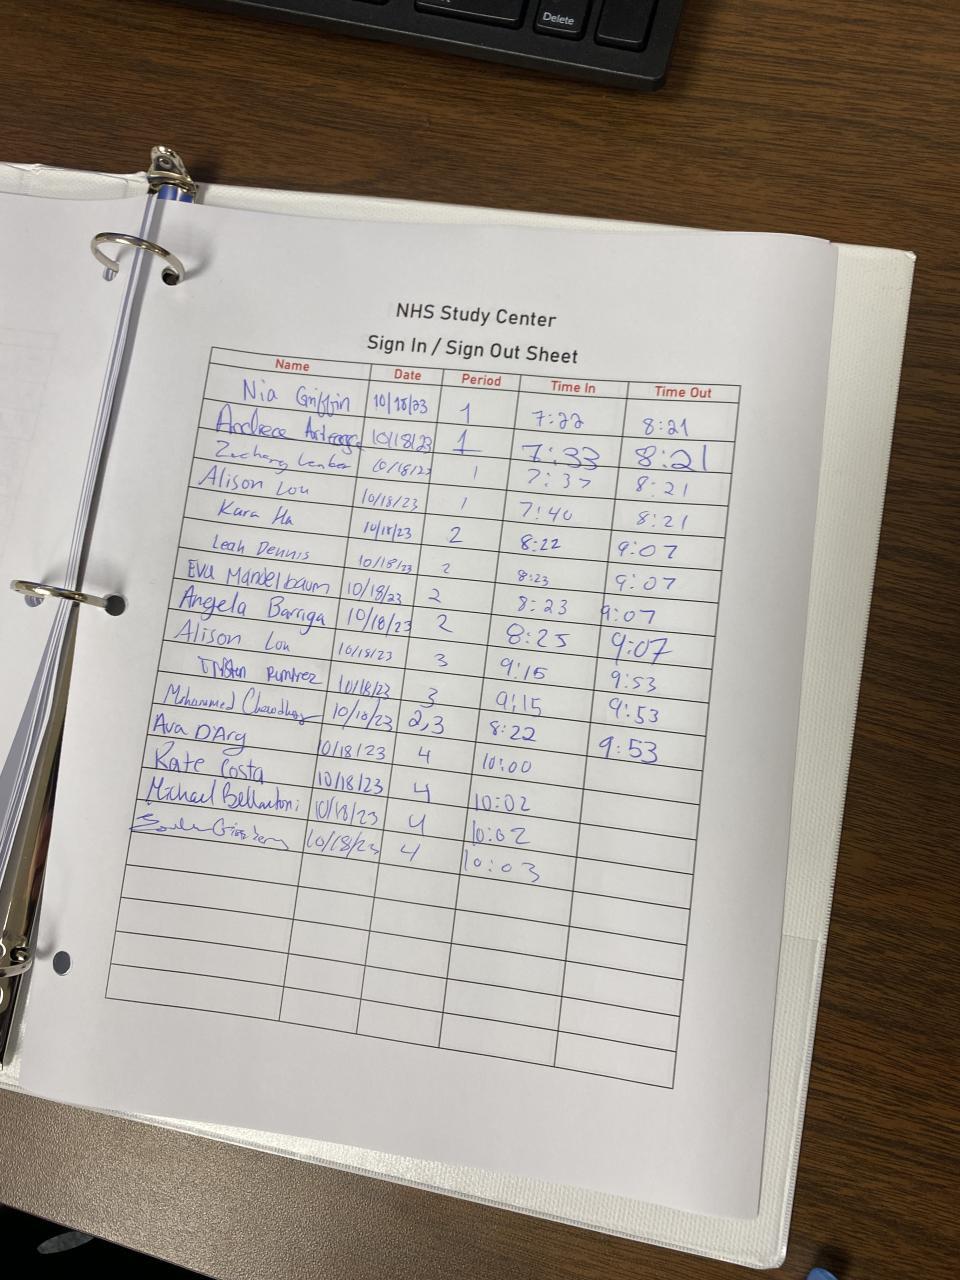 Delete
NHS Study Center
Sign In / Sign Out Sheet
Name Date Period Time In Time Out
Nia Griffin 10/18/23 1 7:22 8:21
Andreea 10/18/23 1 7:33 8:21
Zachary 10/18/23 1 7:37 8:21
Alison Lou 10/18/23 1 7:40 8:21
Kara Ha 10/18/23 2 8:22 9:07
Leah Dennis 10/18/23 2 8:23 9:07
Eva Mandelbaum 10/18/23 2 8:23 9:07
Angela Barriga 10/18/23 2 8:25 9:07
Alison Lou 10/18/23 3 9:15 9:53
10/18/23 3 9:15 9:53
Mohammed Chowdhury 10/18/23 2,3 8:22 9:53
Ava DArg 10/18/23 4 10:00
Kate Costa 10/18/23 4 10:02
Michael Bellantoni 10/18/23 4 10:02
10/18/23 4 10:03